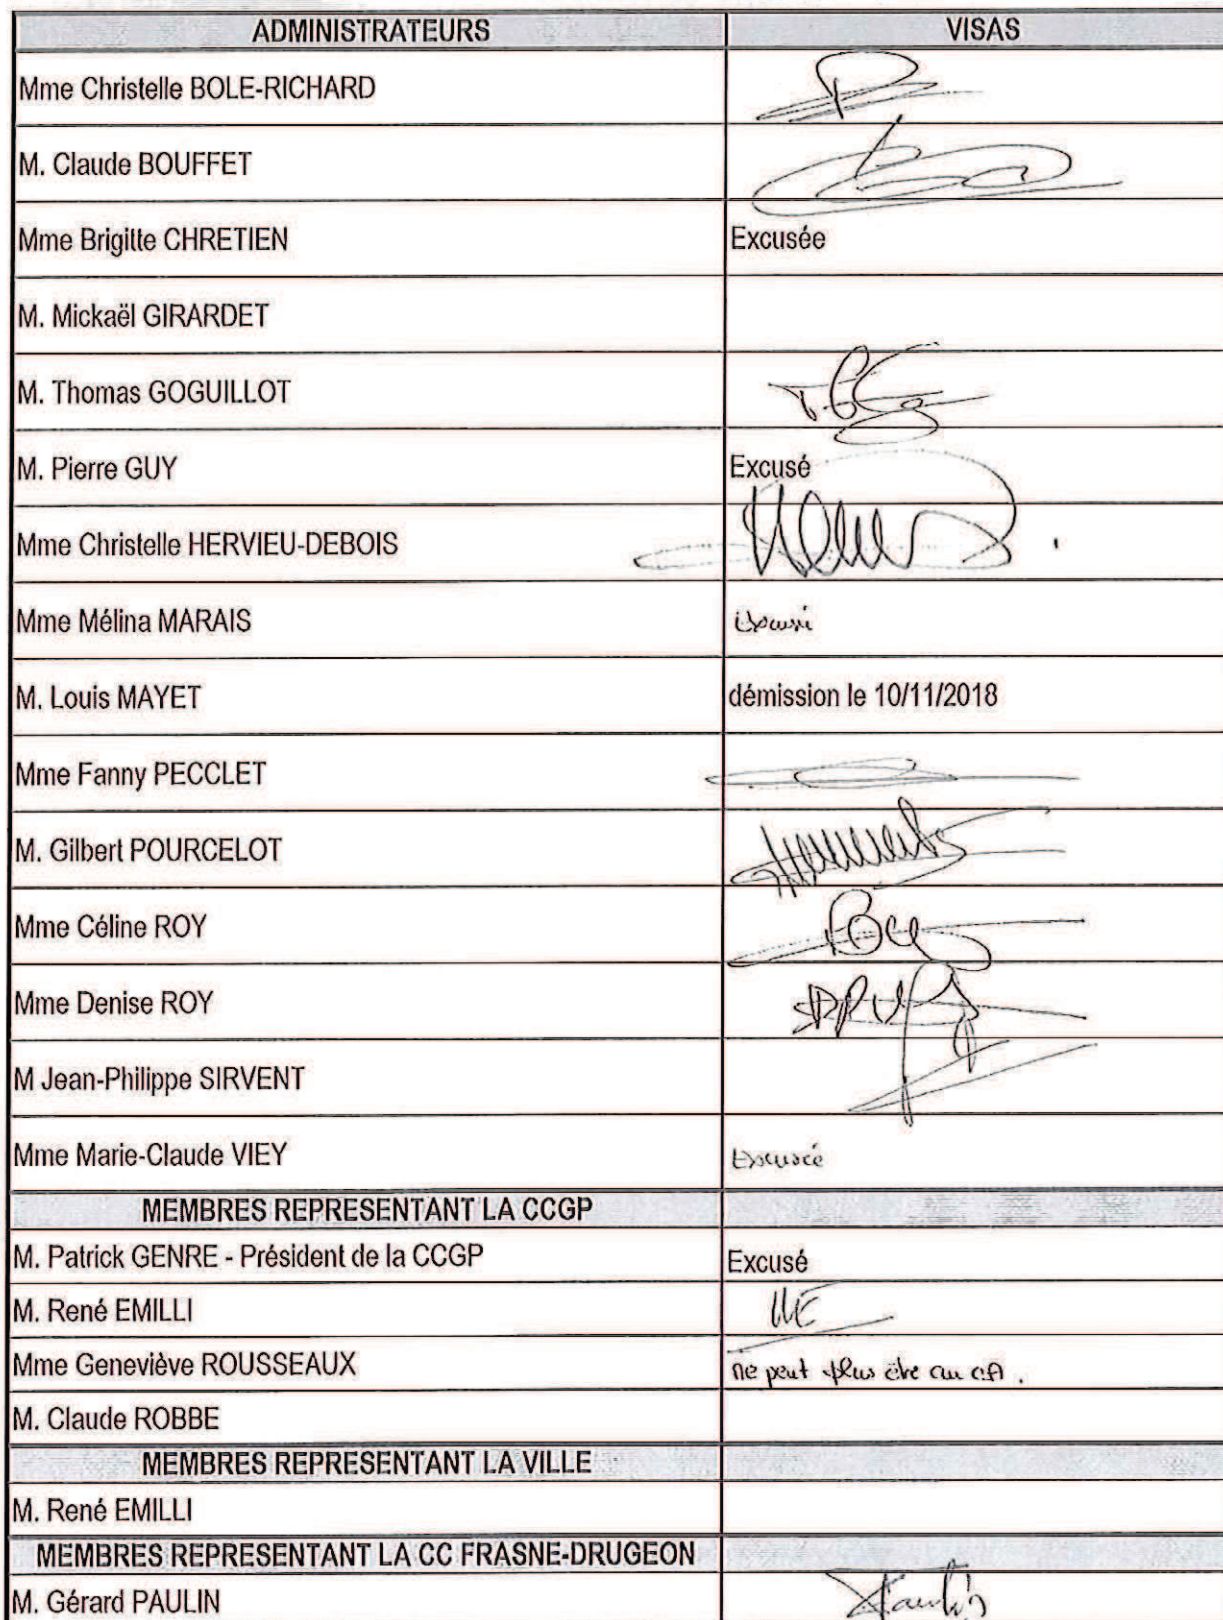 ADMINISTRATEURS VISAS
Mme Christelle BOLE-RICHARD
M. Claude BOUFFET
Mme Brigitte CHRETIEN Excusée
M. Mickaël GIRARDET
M. Thomas GOGUILLOT
M. Pierre GUY Excusé
Mme Christelle HERVIEU-DEBOIS
Mme Mélina MARAIS
M. Louis MAYET démission le 10/11/2018
Mme Fanny PECCLET
M. Gilbert POURCELOT
Mme Céline ROY
Mme Denise ROY
M Jean-Philippe SIRVENT
Mme Marie-Claude VIEY Excusée
MEMBRES REPRESENTANT LA CCGP
M. Patrick GENRE - Président de la CCGP Excusé
M. René EMILLI
Mme Geneviève ROUSSEAUX ne peut plus être au CA.
M. Claude ROBBE
MEMBRES REPRESENTANT LA VILLE
M. René EMILLI
MEMBRES REPRESENTANT LA CC FRASNE-DRUGEON
M. Gérard PAULIN